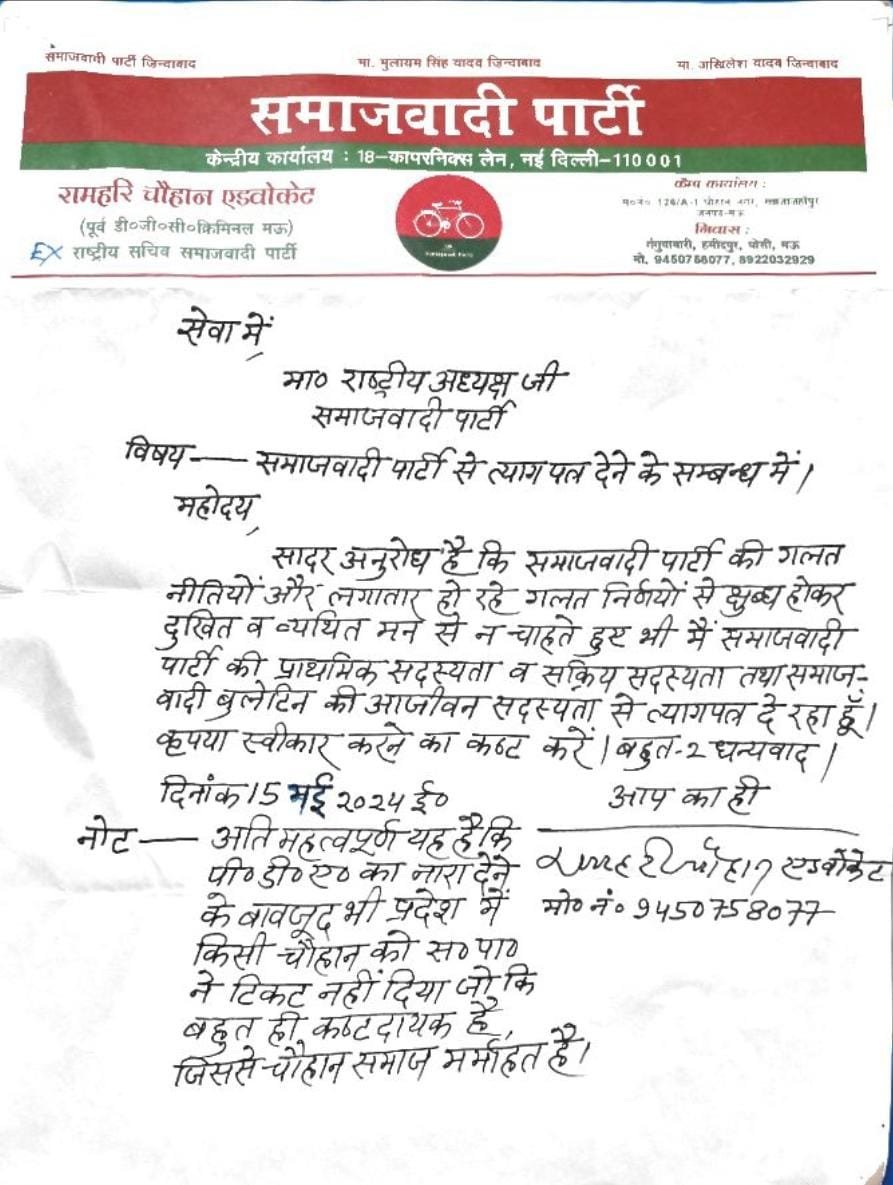 समाजवादी पार्टी जिन्दाबाद
मा. मुलायम सिंह यादव जिन्दाबाद
मा. अखिलेश यादव जिन्दाबाद
समाजवादी पार्टी
केन्द्रीय कार्यालय : 18-कापरनिक्स लेन, नई दिल्ली-110001
रामहरि चौहान एडवोकेट
(पूर्व डी०जी०सी०क्रिमिनल मऊ)
EX राष्ट्रीय सचिव समाजवादी पार्टी
कैम्प कार्यालय :
म०नं० 126/A-1 चौहान नगर,
जनपद-मऊ
निवास :
हमीदपुर, घोसी, मऊ
मो. 9450758077, 8922032929
सेवा में,
मा० राष्ट्रीय अध्यक्ष जी
समाजवादी पार्टी
विषय — समाजवादी पार्टी से त्यागपत्र देने के सम्बन्ध में।
महोदय,
सादर अनुरोध है कि समाजवादी पार्टी की गलत
नीतियों और लगातार हो रहे गलत निर्णयों से क्षुब्ध होकर
दुखित व व्यथित मन से न चाहते हुए भी मैं समाजवादी
पार्टी की प्राथमिक सदस्यता व सक्रिय सदस्यता तथा समाज-
वादी बुलेटिन की आजीवन सदस्यता से त्यागपत्र दे रहा हूँ।
कृपया स्वीकार करने का कष्ट करें। बहुत-2 धन्यवाद।
दिनांक 15 मई 2024 ई०
आप का ही
रामहरी चौहान एडवोकेट
मो० नं० 9450758077
नोट — अति महत्वपूर्ण यह है कि
पी० डी० ए० का नारा देने
के बावजूद भी प्रदेश में
किसी चौहान को स० पा०
ने टिकट नहीं दिया जो कि
बहुत ही कष्टदायक है,
जिससे चौहान समाज मर्माहत है।